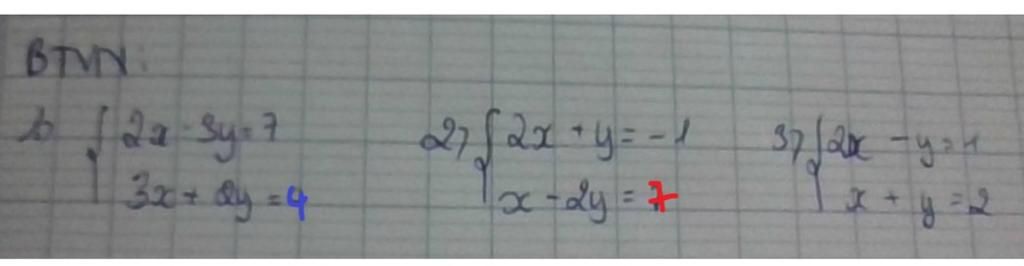 BTVN:
1) { 2x - 3y = 7
3x + 2y = 4
2) { 2x + y = -1
x - 2y = 7
3) { 2x - y = 1
x + y = 2